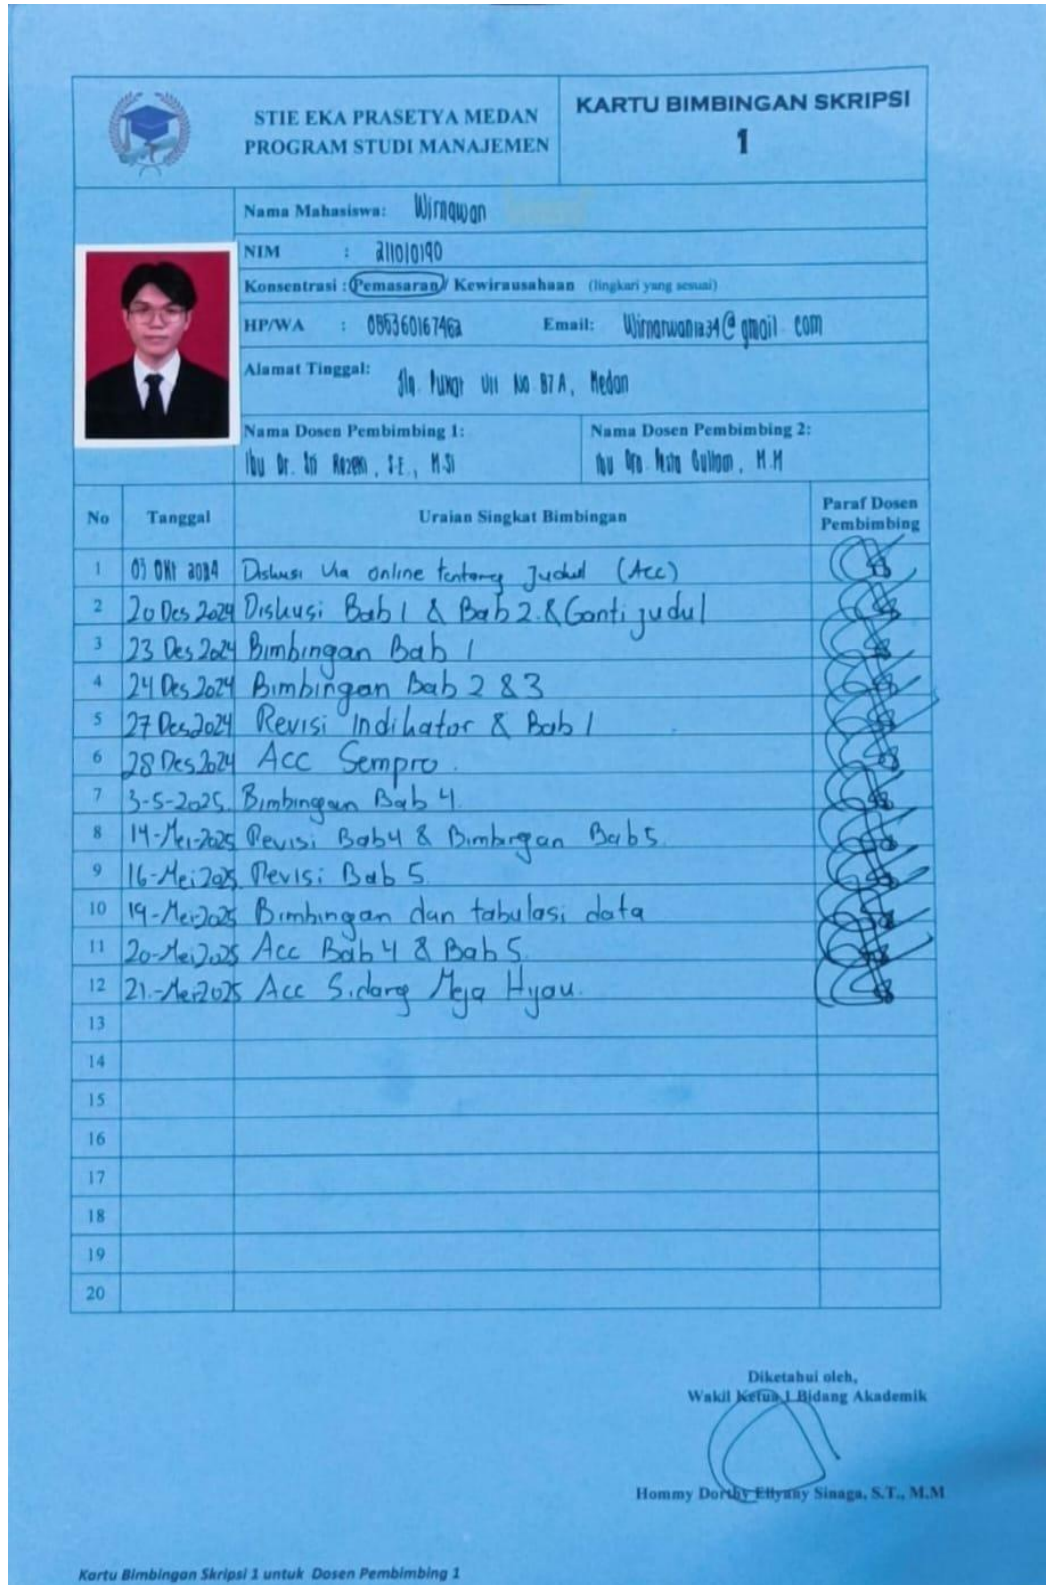 STIE EKA PRASETYA MEDAN
PROGRAM STUDI MANAJEMEN
KARTU BIMBINGAN SKRIPSI
1
Nama Mahasiswa: Wirnawan
NIM : 211010190
Konsentrasi : Pemasaran / Kewirausahaan (lingkari yang sesuai)
HP/WA : 085360167462 Email: Wirnawania34@gmail.com
Alamat Tinggal: Jln. VII No 87A, Medan
Nama Dosen Pembimbing 1: Nama Dosen Pembimbing 2:
Ibu Dr. Sri Rezeki, S.E., M.Si Ibu Dra. Pesta Gultom, M.M
No Tanggal Uraian Singkat Bimbingan Paraf Dosen Pembimbing
1 Okt 2024 Diskusi Via online tentang Judul (Acc)
2 20 Des 2024 Diskusi Bab 1 & Bab 2 & Ganti judul
3 23 Des 2024 Bimbingan Bab 1
4 24 Des 2024 Bimbingan Bab 2 & 3
5 27 Des 2024 Revisi Indikator & Bab 1
6 28 Des 2024 Acc Sempro.
7 3-5-2025. Bimbingan Bab 4.
8 14-Mei-2025 Revisi Bab 4 & Bimbingan Bab 5.
9 16-Mei 2025 Revisi Bab 5.
10 19-Mei-2025 Bimbingan dan tabulasi data
11 20-Mei 2025 Acc Bab 4 & Bab 5.
12 21-Mei-2025 Acc Sidang Meja Hijau.
13
14
15
16
17
18
19
20
Diketahui oleh,
Wakil Ketua 1 Bidang Akademik
Hommy Dorthy Ellyany Sinaga, S.T., M.M
Kartu Bimbingan Skripsi 1 untuk Dosen Pembimbing 1